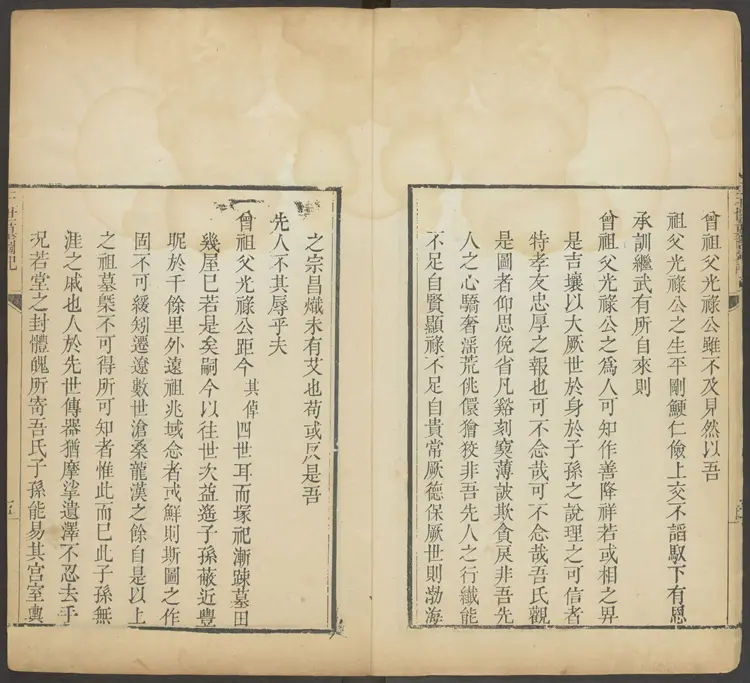 曾祖父光祿公雖不及見然以吾
祖父光祿公之生平剛鯁仁儉上交不諂馭下有恩
承訓繼武有所自來則
曾祖父光祿公之爲人可知作善降祥若或相之昇
是吉壤以大厥世於身於子孫之說理之可信者
特孝友忠厚之報也可不念哉可不念哉吾氏觀
是圖者仰思俛省凡谿刻䆮薄詖欺貪戾非吾先
人之心驕奢滛荒佻儇獪狡非吾先人之行纎能
不足自賢顯祿不足自貴常厥德保厥世則渤海
之宗昌熾未有艾也苟或反是吾
先人不其辱乎夫
曾祖父光祿公距今其倬四世耳而塚祀漸踈墓田
幾屋已若是矣嗣今以往世次益遙子孫蔽近豐
昵於千餘里外遠祖兆域念者或鮮則斯圖之作
固不可緩矧遷遼數世滄桑龍漢之餘自是以上
之祖墓槩不可得所可知者惟此而已此子孫無
涯之戚也人於先世傳器猶摩挲遺澤不忍去手
况若堂之封體魄所寄吾氏子孫能易其宮室輿